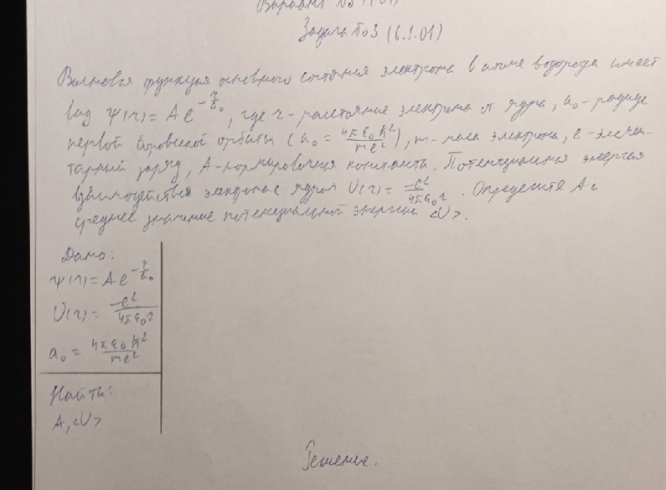 Вариант №
Задача №3 (6.1.01)
Волновая функция основного состояния электрона в атоме водорода имеет
вид ψ(r) = A e^{-r/a₀}, где r - расстояние электрона от ядра, a₀ - радиус
первой боровской орбиты (a₀ = 4πε₀ħ²/me²), m - масса электрона, e - элемен-
тарный заряд, A - нормировочная константа. Потенциальная энергия
взаимодействия электрона с ядром U(r) = -e²/4πε₀r. Определите A и
среднее значение потенциальной энергии <U>.
Дано:
ψ(r) = A e^{-r/a₀}
U(r) = -e²/4πε₀r
a₀ = 4πε₀ħ²/me²
Найти:
A, <U>
Решение.